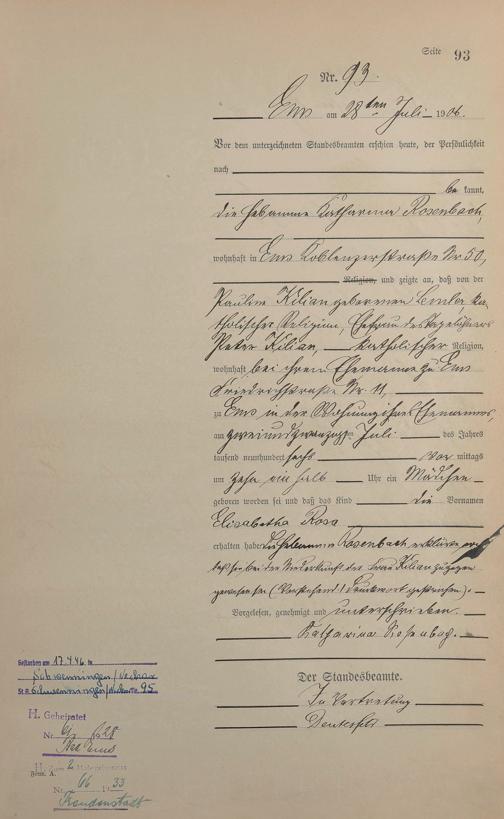 Seite 93
Nr. 93.
Ems am 28ten Juli 1906.
Vor dem unterzeichneten Standesbeamten erschien heute, der Persönlichkeit
nach
be kannt,
die Hebamme Katharina Rosenbach,
wohnhaft in Ems Koblenzerstraße Nr. 50,
Religion, und zeigte an, daß von der
Pauline Kilian geborenen ka-
tholischer Religion, Ehefrau des Tagelöhners
Peter Kilian, katholischer Religion,
wohnhaft bei ihrem Ehemanne zu Ems
Friedrichstraße Nr. 11,
zu Ems in der Wohnung ihres Ehemannes,
am zweiundzwanzigsten Juli des Jahres
tausend neunhundert sechs vor mittags
um zehn ein halb Uhr ein Mädchen
geboren worden sei und daß das Kind die Vornamen
Elisabetha Rosa
erhalten habe. Die Hebamme Rosenbach erklärte
daß sie bei der Niederkunft der Frau Kilian zugegen
gewesen sei (Vorstehend 1 Druckwort gestrichen).
Vorgelesen, genehmigt und unterschrieben.
Katharina Rosenbach.
Der Standesbeamte.
In Vertretung
Gestorben am 17.4.46 in
Schwenningen/Neckar
St. A. Schwenningen/Neckar Nr. 95
H. Geheiratet
Nr.
Bad Ems
Nr. 66 1933
Freudenstadt